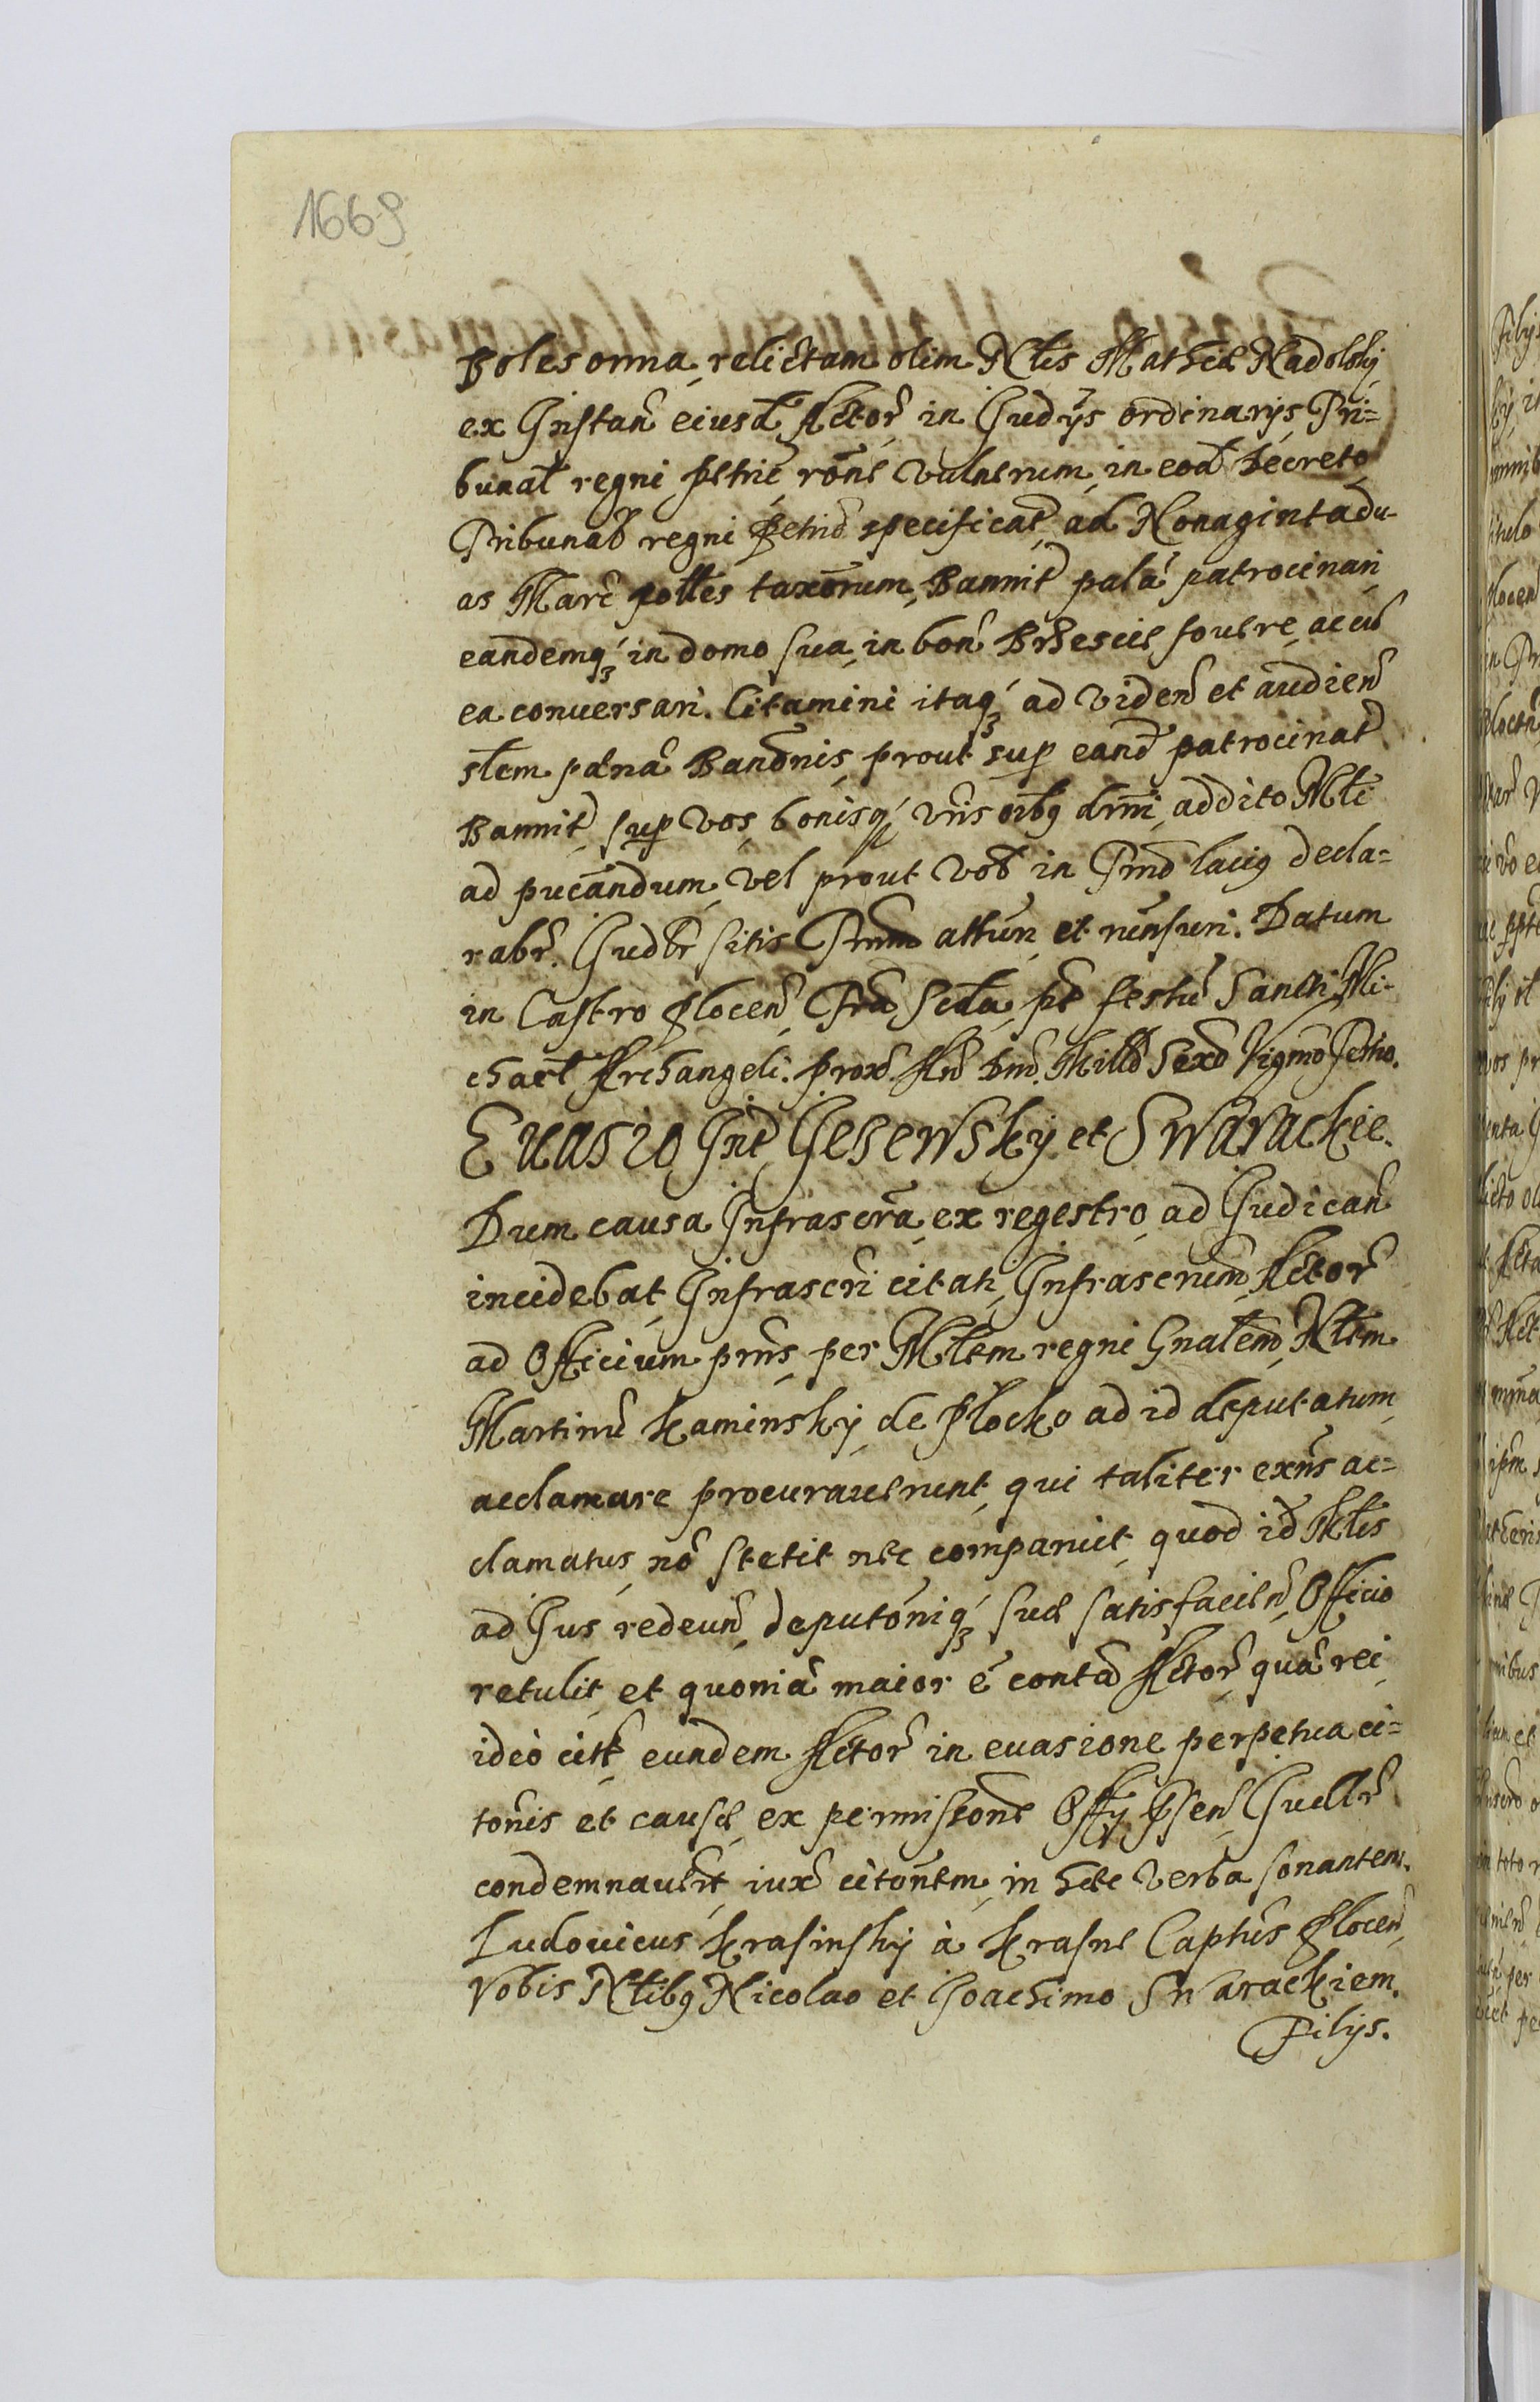 1669
Bolesonna, relictam olim Nłis Mathiæ Nadolsky
ex Instan̄ eiusđ Actor̄ in Iudÿs ordinarijs Tri=
bunał regni Petric̄ rōne vulnerum in eođ Decreto
Tribunał regni Petric̄ specificat̄ ad Nonagintadu-
as Marc̄ połłes taxōrum, Bannit̄ palā patrocinari
eandemqꝫ in domo sua in bon̄ Brzescie fouere, ac cū
ea conuersari. Citamini itaqꝫ ad viden̄ et audien̄
słem pœnā Banōnis, prout sup eanđ patrocinat̄
Bannit̄ sup vos, bonisqꝫ vrīs oībꝫ drīni, addito Młi
ad pucāndum, vel prout vob̄ in Trmō laciꝫ decla=
rabr̄. Iudłr sitis Trmm attūri et rūnsuri. Datum
in Castro Plocen̄ Fr̄a Scđa p̄t festū Sancti Mi-
chael̄ Archangeli. prox̄. An̄o Dnī. Milłō Sexō Vigmō Tertio.
Euasio Int̄ Gesewsky et Swarackie.
Dum causa Infrascrā ex regestro, ad Iudican̄
incidebat, Infrascrī citati, Infrascrum̄ Actor̄
ad Officium prn̄s, per Młem regni Gnałem, Nłem
Martinū Kaminsky de Płocko ad id deputatum
acclamare procurauerunt, qui taliter exn̄s ac=
clamatus, nō stetit nec comparuit, quod iđ Młis
ad Ius redeun̄ deputōniqꝫ suæ satisfacien̄ Officio
retulit, et quoniā maior ē contā Actor̄ quā rei
ideò citī eundem Actor̄ in euasione perpetua ci=
tōnis et causæ, ex permissione Offÿ Pn̄sen̄ Iudłr̄
condemnauerūt iux̄ citōnem in hæc verba sonantem.
Ludouicus Krasinsky à Krasne Captūs Plocen̄
Vobis Nłibꝫ Nicolao et Ioachimo Swarackiem.
Filijs.